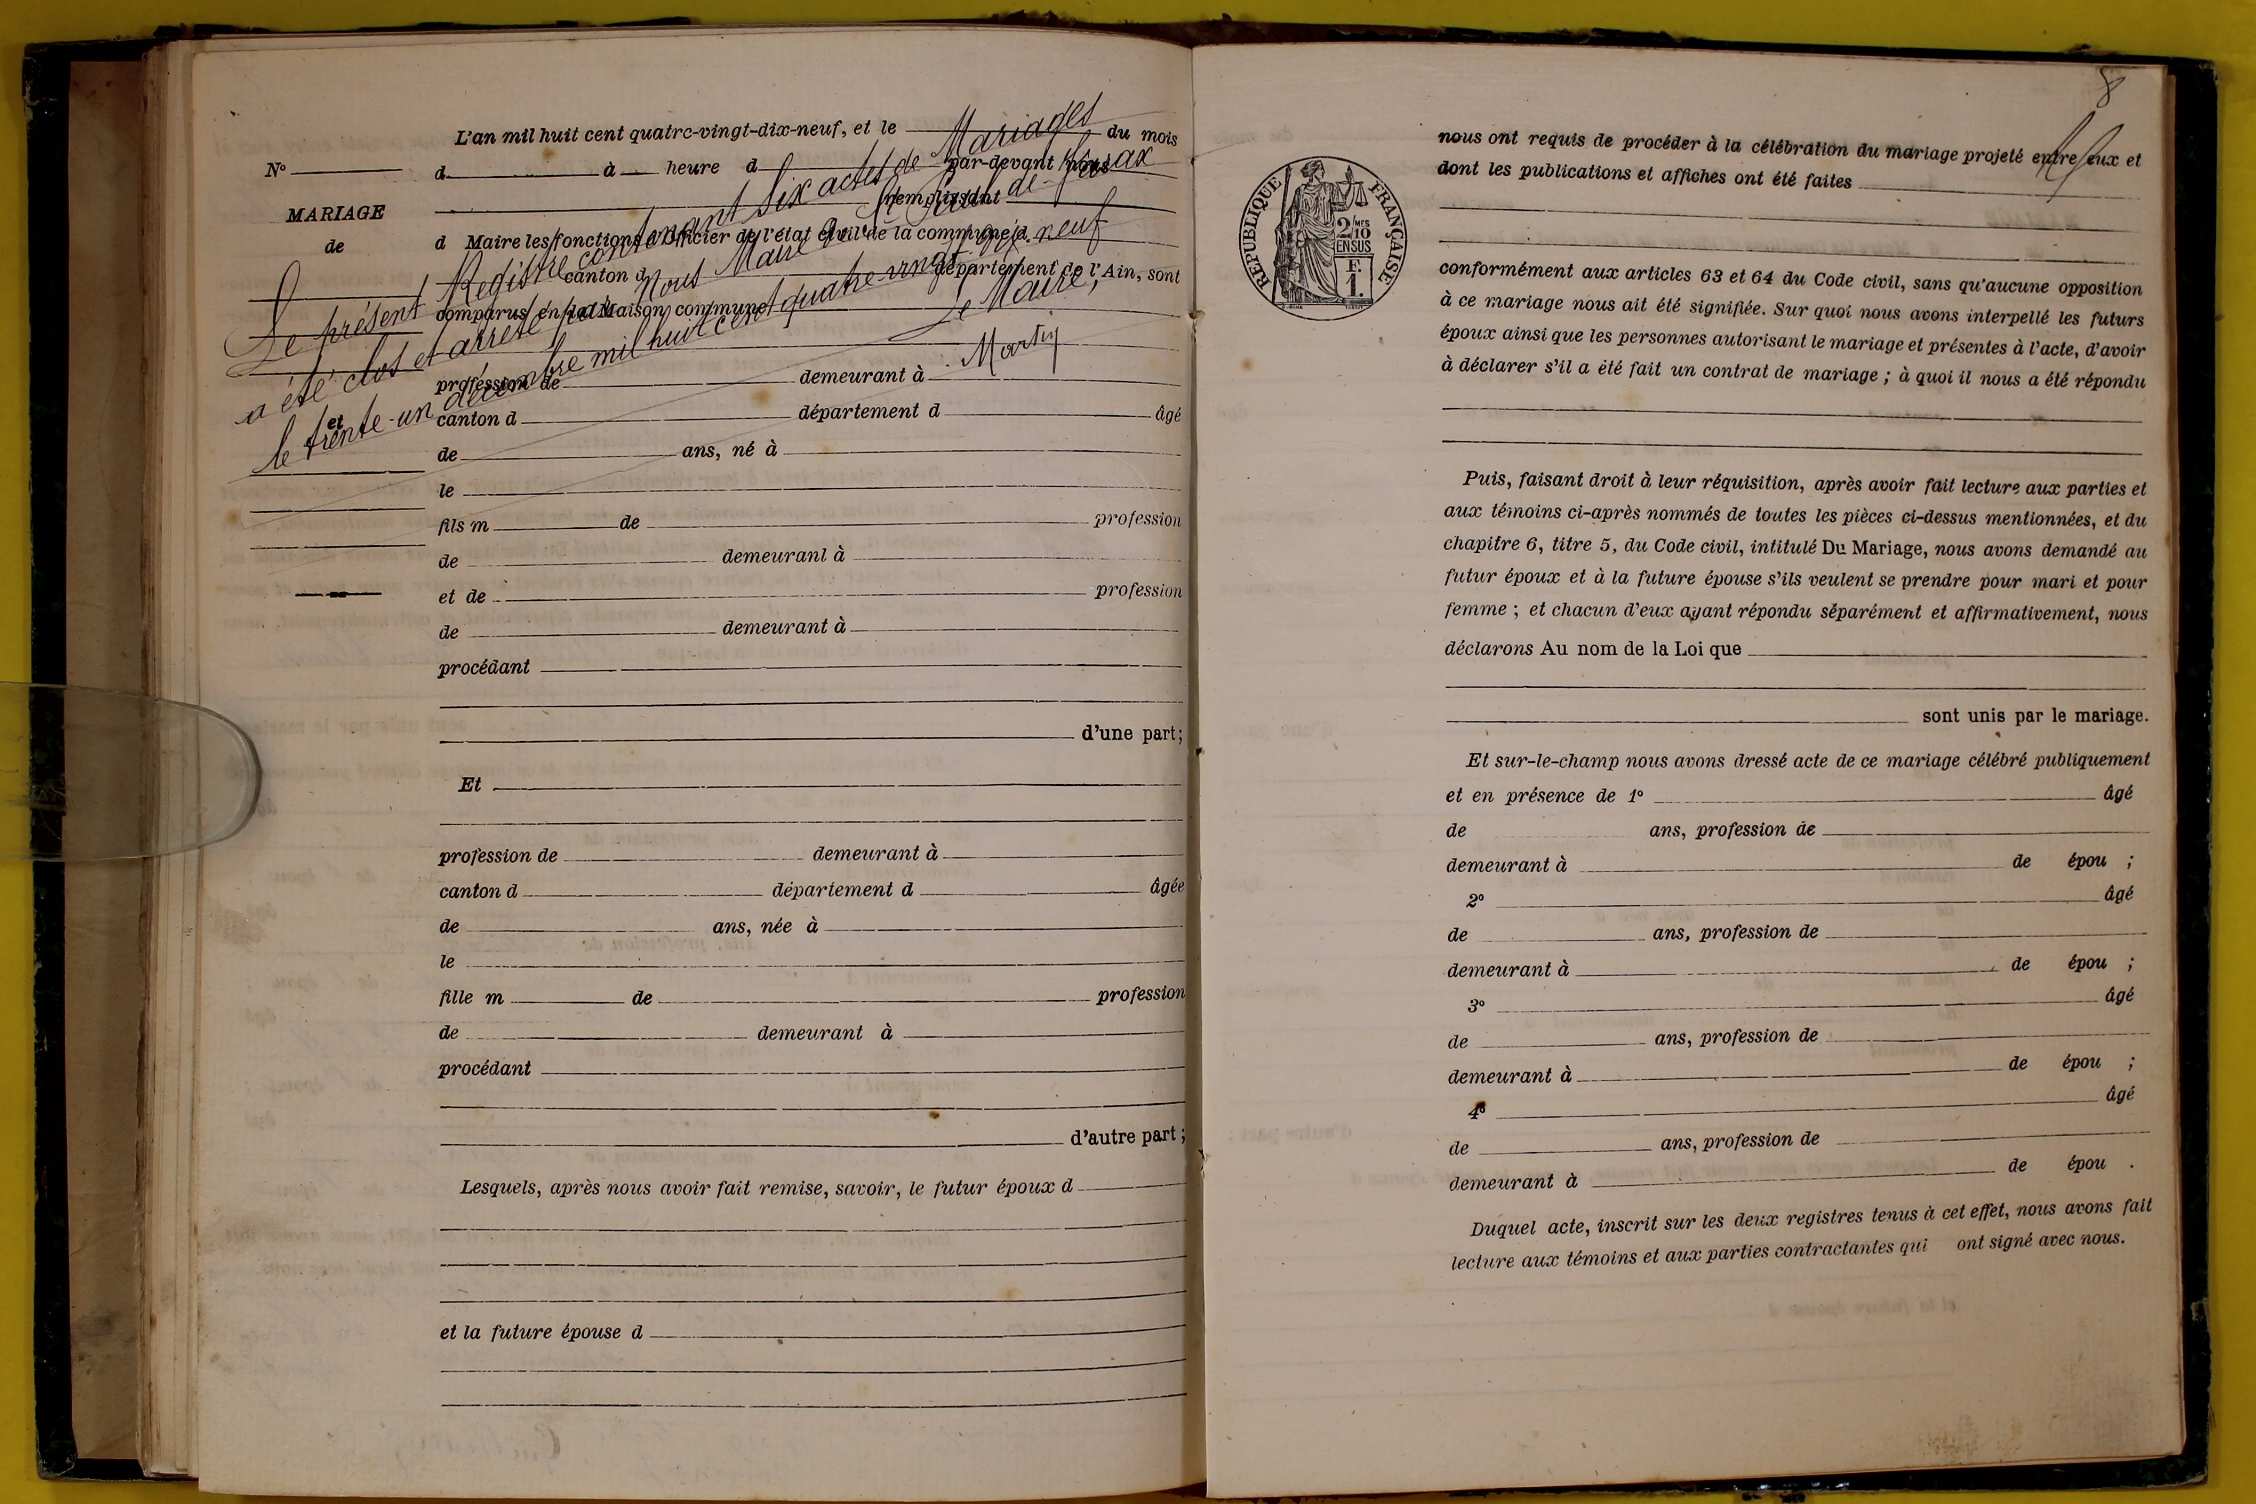 L'an mil huit cent quatre-vingt-dix-neuf, et le du mois
N° d à heure d par-devant nous
MARIAGE remplissant
de d Maire les fonctions d'Officier de l'état civil de la commune d
canton d département de l'Ain, sont
comparus en la Maison commune
Le présent Registre contenant six actes de Mariages
a été clos et arrêté par Nous Maire de St Paul-de-Varax
le trente-un décembre mil huit cent quatre-vingt-dix-neuf
Le Maire,
Martin
profession de demeurant à
et canton d département d âgé
de ans, né à
le
fils m de profession
de demeurant à
et de profession
de demeurant à
procédant
d'une part;
Et
profession de demeurant à
canton d département d âgée
de ans, née à
le
fille m de profession
de demeurant à
procédant
d'autre part;
Lesquels, après nous avoir fait remise, savoir, le futur époux d
et la future épouse d
8
nous ont requis de procéder à la célébration du mariage projeté entre eux et
dont les publications et affiches ont été faites
RÉPUBLIQUE FRANÇAISE
2/10 MES
EN SUS
F.
1.
conformément aux articles 63 et 64 du Code civil, sans qu'aucune opposition
à ce mariage nous ait été signifiée. Sur quoi nous avons interpellé les futurs
époux ainsi que les personnes autorisant le mariage et présentes à l'acte, d'avoir
à déclarer s'il a été fait un contrat de mariage ; à quoi il nous a été répondu
Puis, faisant droit à leur réquisition, après avoir fait lecture aux parties et
aux témoins ci-après nommés de toutes les pièces ci-dessus mentionnées, et du
chapitre 6, titre 5, du Code civil, intitulé Du Mariage, nous avons demandé au
futur époux et à la future épouse s'ils veulent se prendre pour mari et pour
femme ; et chacun d'eux ayant répondu séparément et affirmativement, nous
déclarons Au nom de la Loi que
sont unis par le mariage.
Et sur-le-champ nous avons dressé acte de ce mariage célébré publiquement
et en présence de 1° âgé
de ans, profession de
demeurant à de épou ;
2° âgé
de ans, profession de
demeurant à de épou ;
3° âgé
de ans, profession de
demeurant à de épou ;
4° âgé
de ans, profession de
demeurant à de épou .
Duquel acte, inscrit sur les deux registres tenus à cet effet, nous avons fait
lecture aux témoins et aux parties contractantes qui ont signé avec nous.